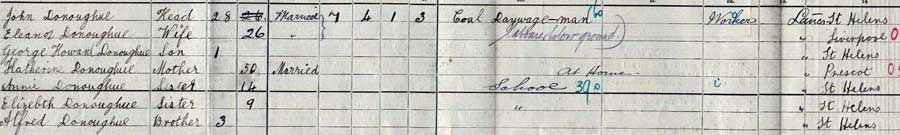 John Donoughue Head 28 26 Married 7 4 1 3 Coal Daywage-man Worker Lancs St Helens
Eleanor Donoughue Wife 26 " (Labourer below ground) " Liverpool 0
George Howard Donoughue Son 1 " St Helens
Katherine Donoughue Mother 50 Married At Home " Prescot 0
Annie Donoughue Sister 14 School 390 " St Helens
Elizebth Donoughue Sister 9 " " St Helens
Alfred Donoughue Brother 3 " St Helens